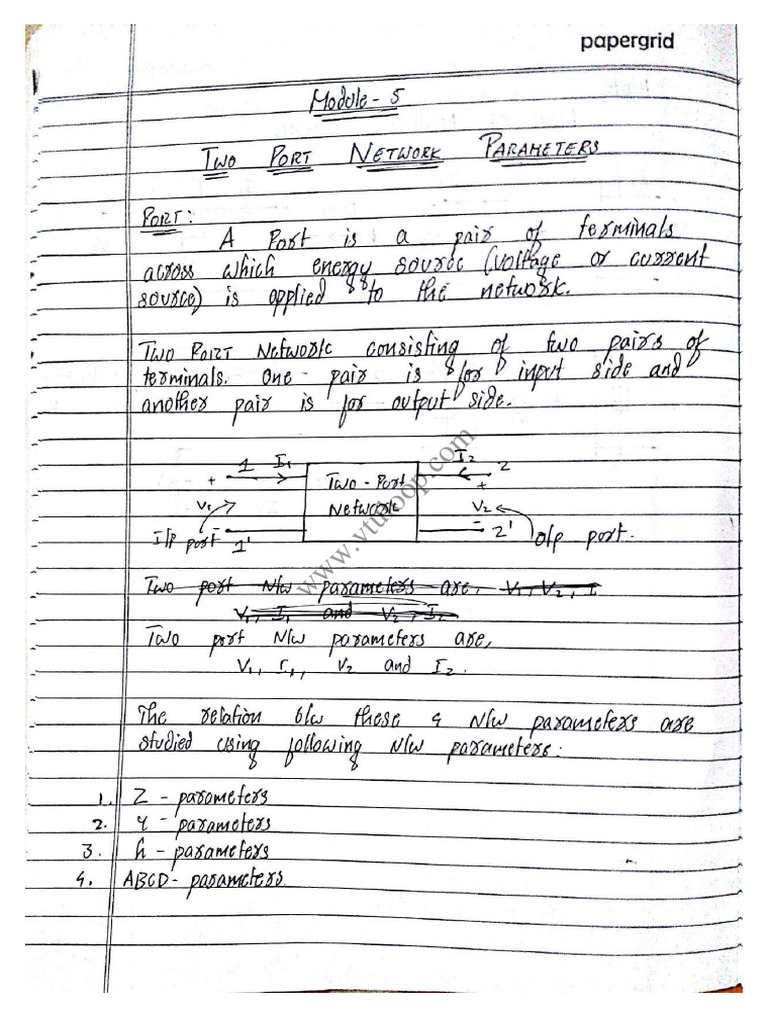 papergrid
Module - 5
TWO PORT NETWORK PARAMETERS
PORT:
A Port is a pair of terminals
across which energy source (voltage or current
source) is applied to the network.
TWO PORT Network consisting of two pairs of
terminals. One pair is for input side and
another pair is for output side.
1 I1 I2 2
+ Two - Port +
V1 Network V2
I/p port - 1' - 2' O/p port.
www.vtuloop.com
Two port N/w parameters are, V1, V2, I
V1, I1 and V2, I2
Two port N/w parameters are,
V1, I1, V2 and I2.
The relation b/w these 4 N/w parameters are
studied using following N/w parameters:
1. Z - parameters
2. Y - parameters
3. h - parameters
4. ABCD - parameters.